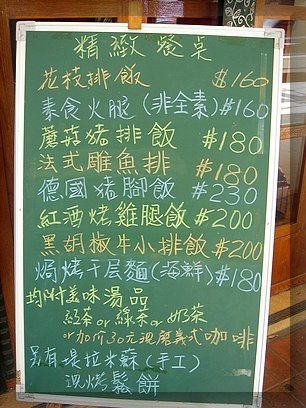 精緻餐桌
花枝排飯 $160
素食火腿(非全素)$160
蘑菇豬排飯 $180
法式雕魚排 $180
德國豬腳飯 $230
紅酒烤雞腿飯 $200
黑胡椒牛小排飯 $200
焗烤千层麵(海鮮)$180
均附美味湯品
紅茶or綠茶or奶茶
or加价30元現磨義式咖啡
另有堤拉米蘇(手工)
現烤鬆餅